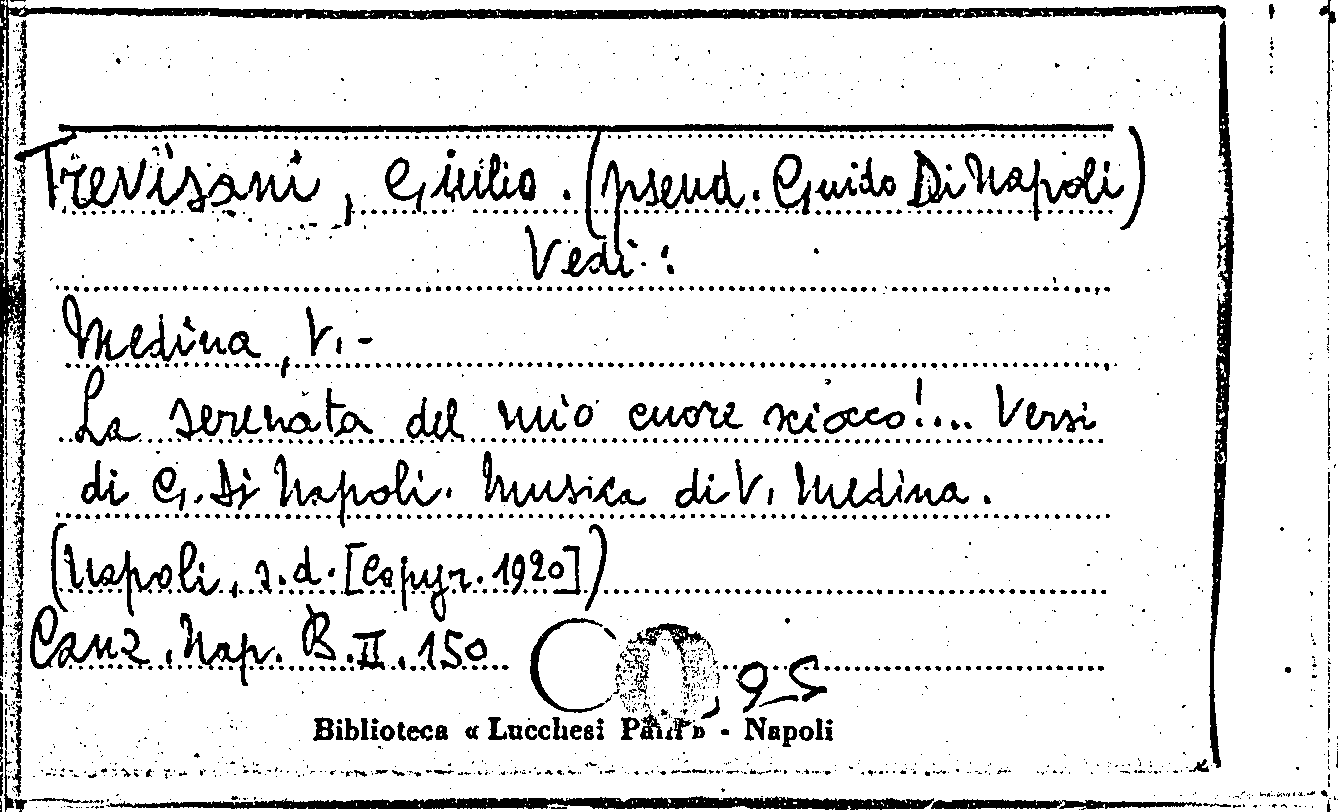 Trevisani, Giulio. (pseud. Guido Di Napoli)
Vedi:
Medina, V. -
La serenata del mio cuore sciocco!... Versi
di G. Di Napoli. Musica di V. Medina.
(Napoli, s.d. [Copyr. 1920])
Canz. Nap. B.II.150
Biblioteca « Lucchesi Palli » - Napoli